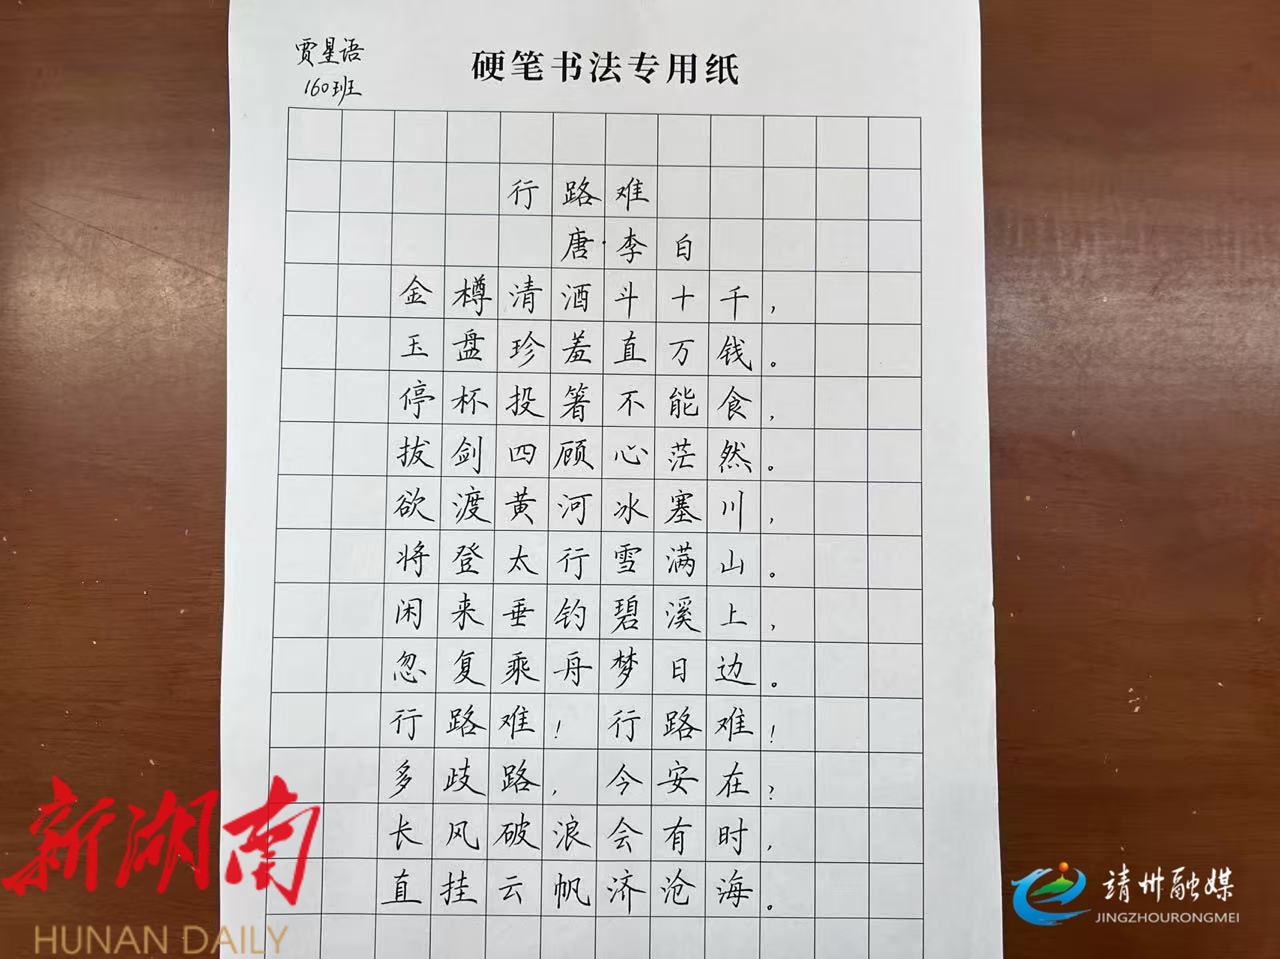 贾星语
160班
硬笔书法专用纸
行路难
唐·李白
金樽清酒斗十千，
玉盘珍羞直万钱。
停杯投箸不能食，
拔剑四顾心茫然。
欲渡黄河冰塞川，
将登太行雪满山。
闲来垂钓碧溪上，
忽复乘舟梦日边。
行路难！行路难！
多歧路，今安在？
长风破浪会有时，
直挂云帆济沧海。
新湖南
HUNAN DAILY
靖州融媒
JINGZHOURONGMEI